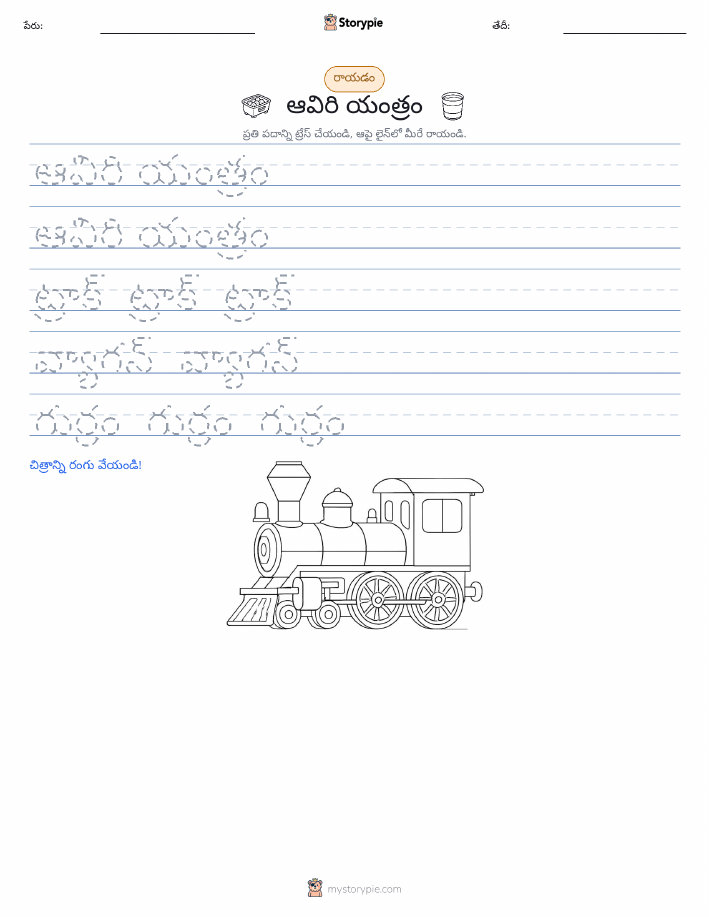 పేరు:
Storypie
తేదీ:
రాయడం
ఆవిరి యంత్రం
ప్రతి పదాన్ని ట్రేస్ చేయండి, ఆపై లైన్‌లో మీరే రాయండి.
ఆవిరి యంత్రం
ఆవిరి యంత్రం
ట్రాక్ ట్రాక్ ట్రాక్
వ్యాగన్ వ్యాగన్
గుర్రం గుర్రం గుర్రం
చిత్రాన్ని రంగు వేయండి!
mystorypie.com